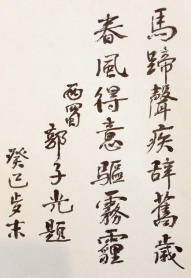 馬蹄聲疾辭舊歲
春風得意驅霧霾
西蜀
郭子光題
癸巳岁末